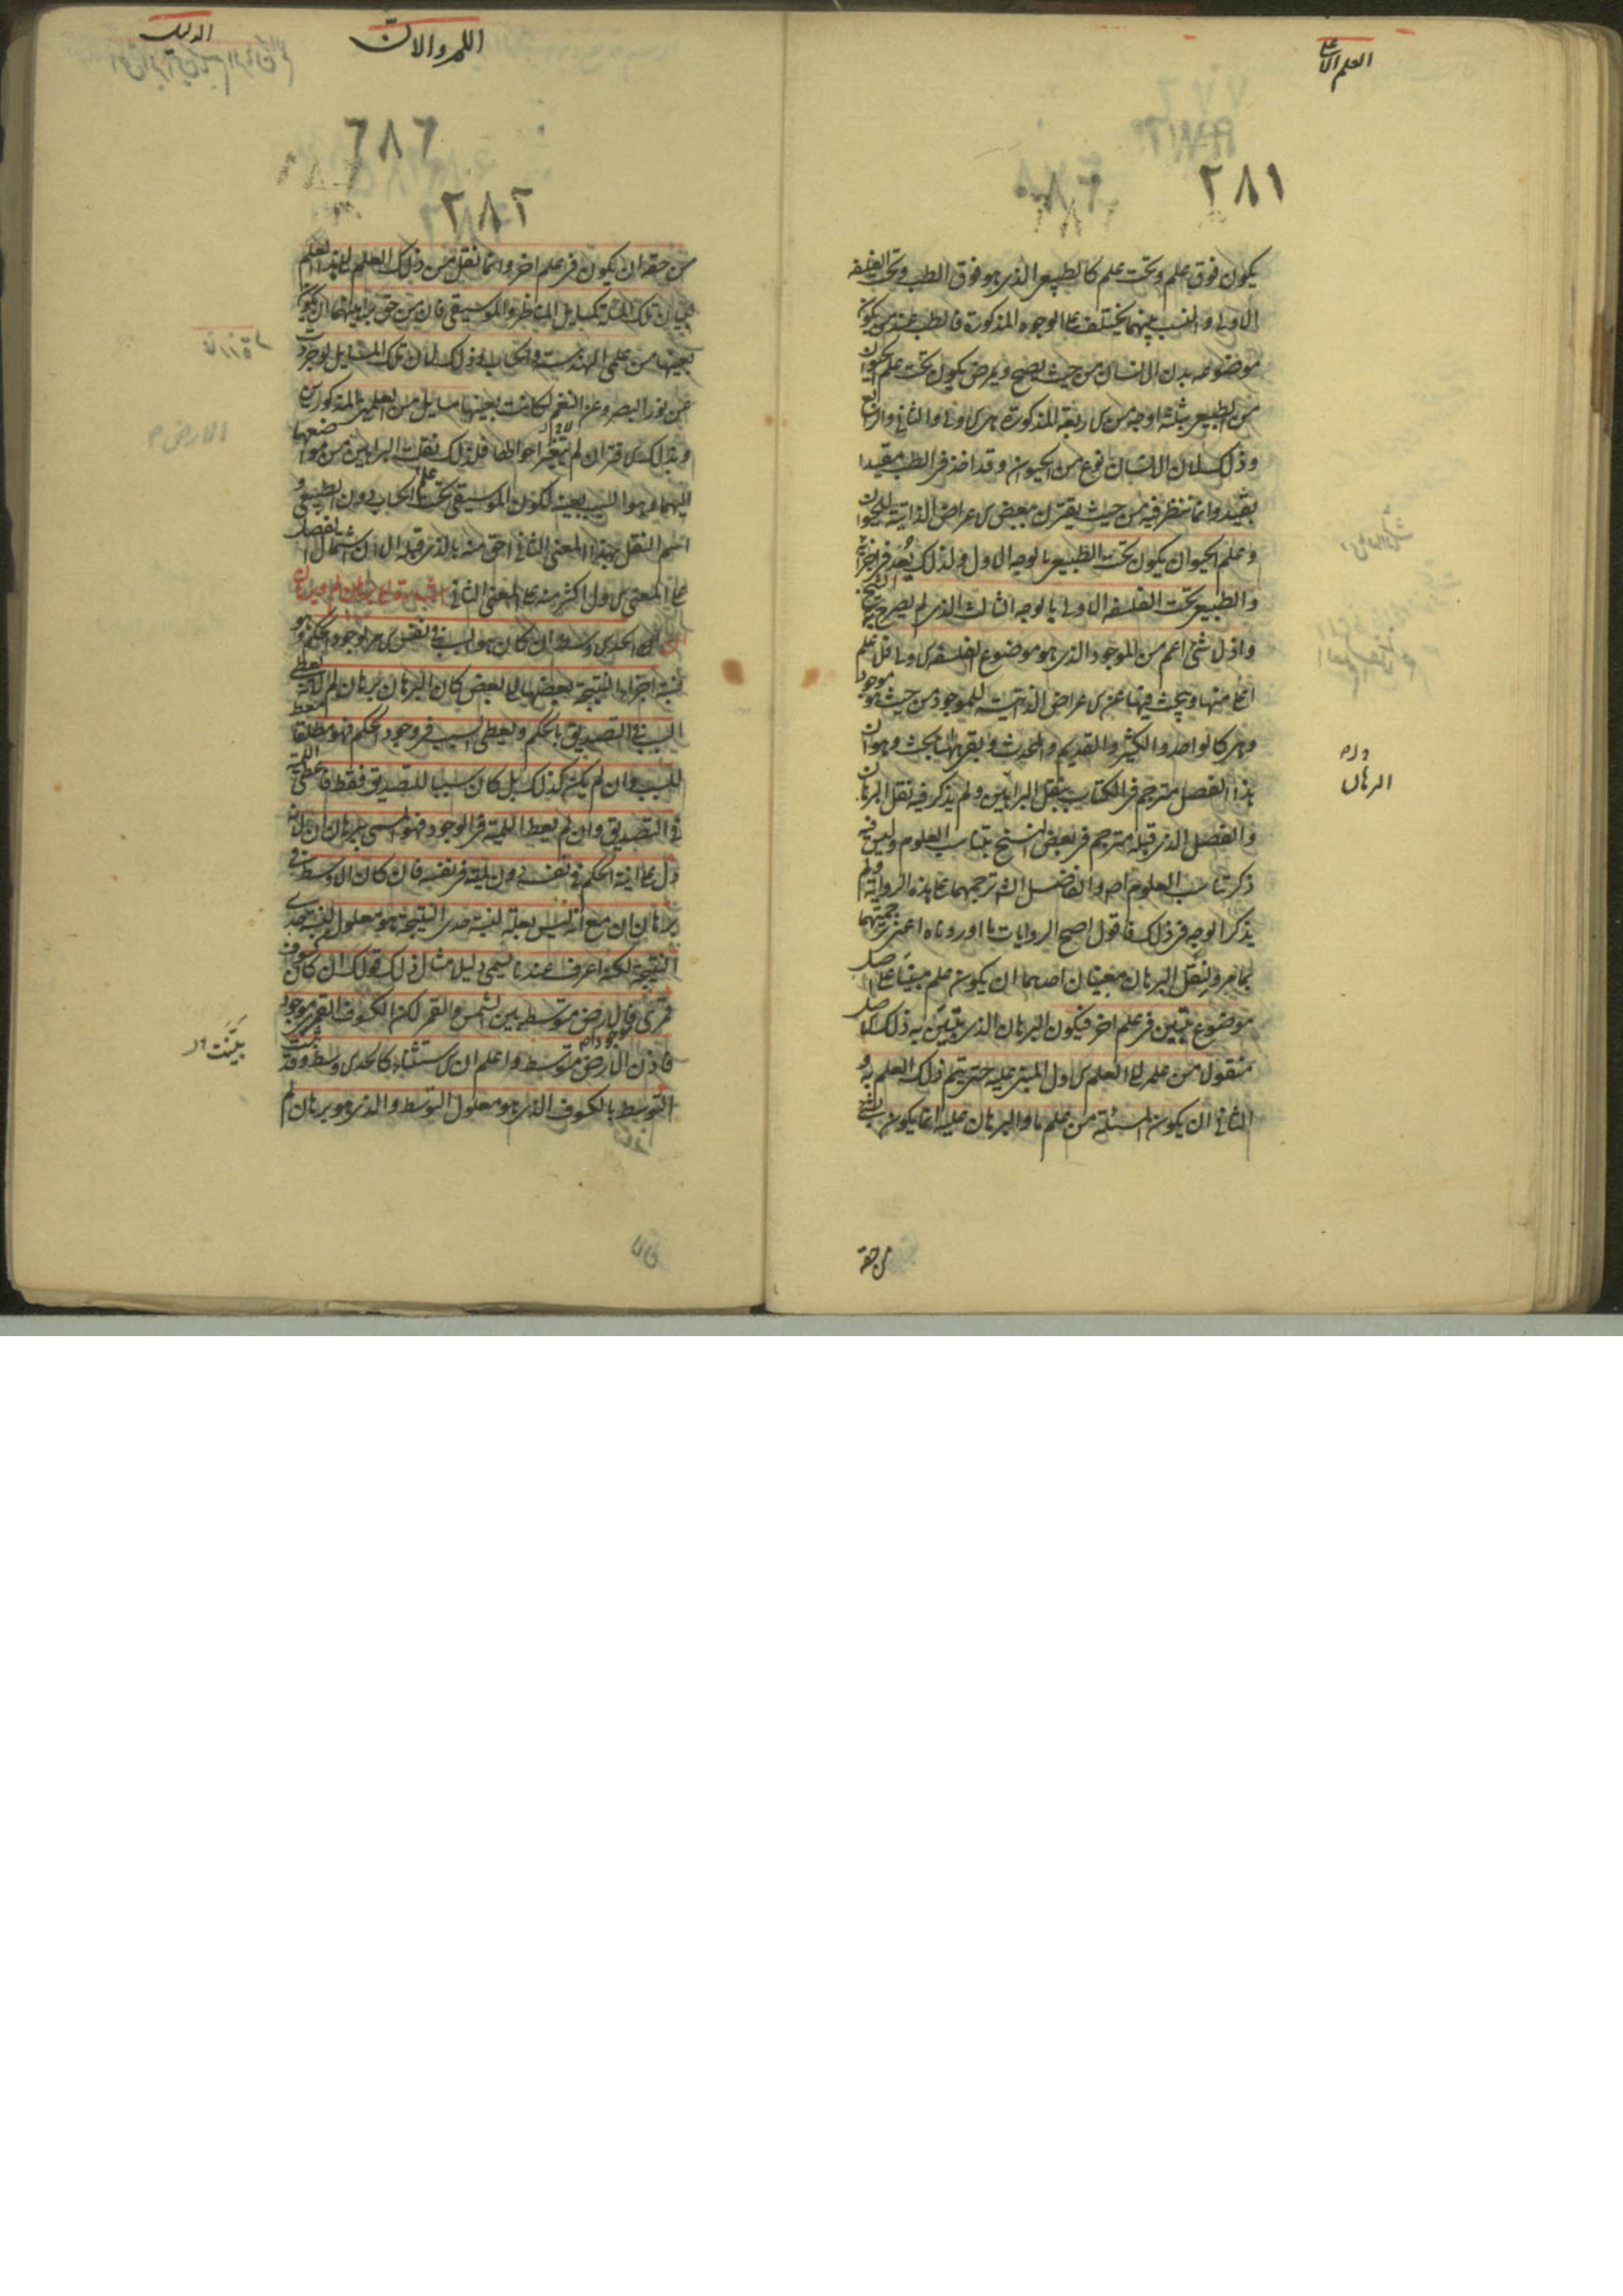 العلم الاعلى
٢٨١
يكون فوق علم وتحت علم كالطبيعي الذي هو فوق الطب وتحت الفلسفة
الاولى والنسب بينهما يختلف على الوجوه المذكورة فالطب عند من يكون
موضوعه بدن الانسان من حيث يصح ويمرض يكون تحت علم الحيوان
من الطبيعي بثلثة اوجه من الاربعة المذكورة هي الاول والثاني والرابع
وذلك لان الانسان نوع من الحيوان وقد اخذ في الطب مقيدا
بقيد وانما ننظر فيه من حيث يقترن ببعض الاعراض الذاتية للحيوان
وعلم الحيوان يكون تحت الطبيعي بالوجه الاول ولذلك يُعد في اجزائه
والطبيعي تحت الفلسفة الاولى بالوجه الثالث الذي لم يصرح الشيخ به
واذ لا شئ اعم من الموجود الذي هو موضوع الفلسفة الاولى فلا علم
اعلى منها ويبحث فيها عن الاعراض الذاتية للموجود من حيث هو موجود
وهي كالواحد والكثير والقديم والمحدث وبقي ههنا بحث وهو ان
هذا الفصل مترجم في الكتاب بنقل البراهين ولم يذكر فيه نقل البرهان
والفصل الذي قبله مترجم في بعض النسخ بتناسب العلوم وليس فيه
ذكر تناسب العلوم اصلا والفاضل الشارح ترجمهما على هذه الرواية ولم
يذكر الوجه في ذلك فاقول اصح الروايات ما اوردناه اعني ترجمتهما
بما مر ولنقل البرهان معنيان احدهما ان يكون علم مبنيا على اصل
موضوع يتبين في علم اخر فيكون البرهان الذي يتبين به ذلك الاصل
منقولا من علمه الى العلم الاول المبني عليه حتى يتم ذلك العلم به و
الثاني ان يكون المسئلة من علم ما والبرهان عليه انما يكون بشئ
من حقه
اللم والان
الدليل
٢٨٢
من حقه ان يكون في علم اخر وانما نقل من ذلك العلم الى هذا العلم
لبيان تلك المسئلة كمسايل المناظر والموسيقى فان من حق براهينهما ان يكون
بعينها من علمي الهندسة والحساب وذلك لان تلك المسايل لو جردت
عن نور البصر وعن النغم لكانت بعينها مسايل من العلمين المذكورين
وبذلك الاقتران لم يتغير احوالها فلذلك نقلت البراهين من موضعها
اليهما وهو السبب بعينه لكون الموسيقى تحت علم الحساب دون الطبيعي و
اسم النقل بهذا المعنى الثاني احق منه بالذي قبله الا ان اشتمال الفصل
على المعنى الاول اكثر منه على المعنى الثاني اشارة الى برهان لم وبرهان
ان الحد الاوسط ان كان هو السبب في نفس الامر لوجود الحكم وهو
نسبة اجزاء النتيجة بعضها الى بعض كان البرهان برهان لم لانه يعطي
السبب في التصديق بالحكم ويعطي السبب في وجود الحكم فهو مطلقا معط
للسبب وان لم يكن كذلك بل كان سببا للتصديق فقط فاعطى اللمية
في التصديق وان لم يعط اللمية في الوجود فهو المسمى برهان ان لانه
دل على انية الحكم في نفسه دون لميته في نفسه فان كان الاوسط في
برهان ان مع انه ليس بعلة لنسبة حدي النتيجة هو معلول لنسبة حدي
النتيجة لكنه اعرف عندنا يسمى دليل مثال ذلك قولك ان كان كسوف
قمري فالارض متوسطة بين الشمس والقمر لكن الكسوف القمري موجود
فاذن الارض متوسطة واعلم ان الاستثناء كالحد الاوسط وقد بينت
التوسط بالكسوف الذي هو معلول التوسط والذي هو برهان لم
الارض م
بيّنت